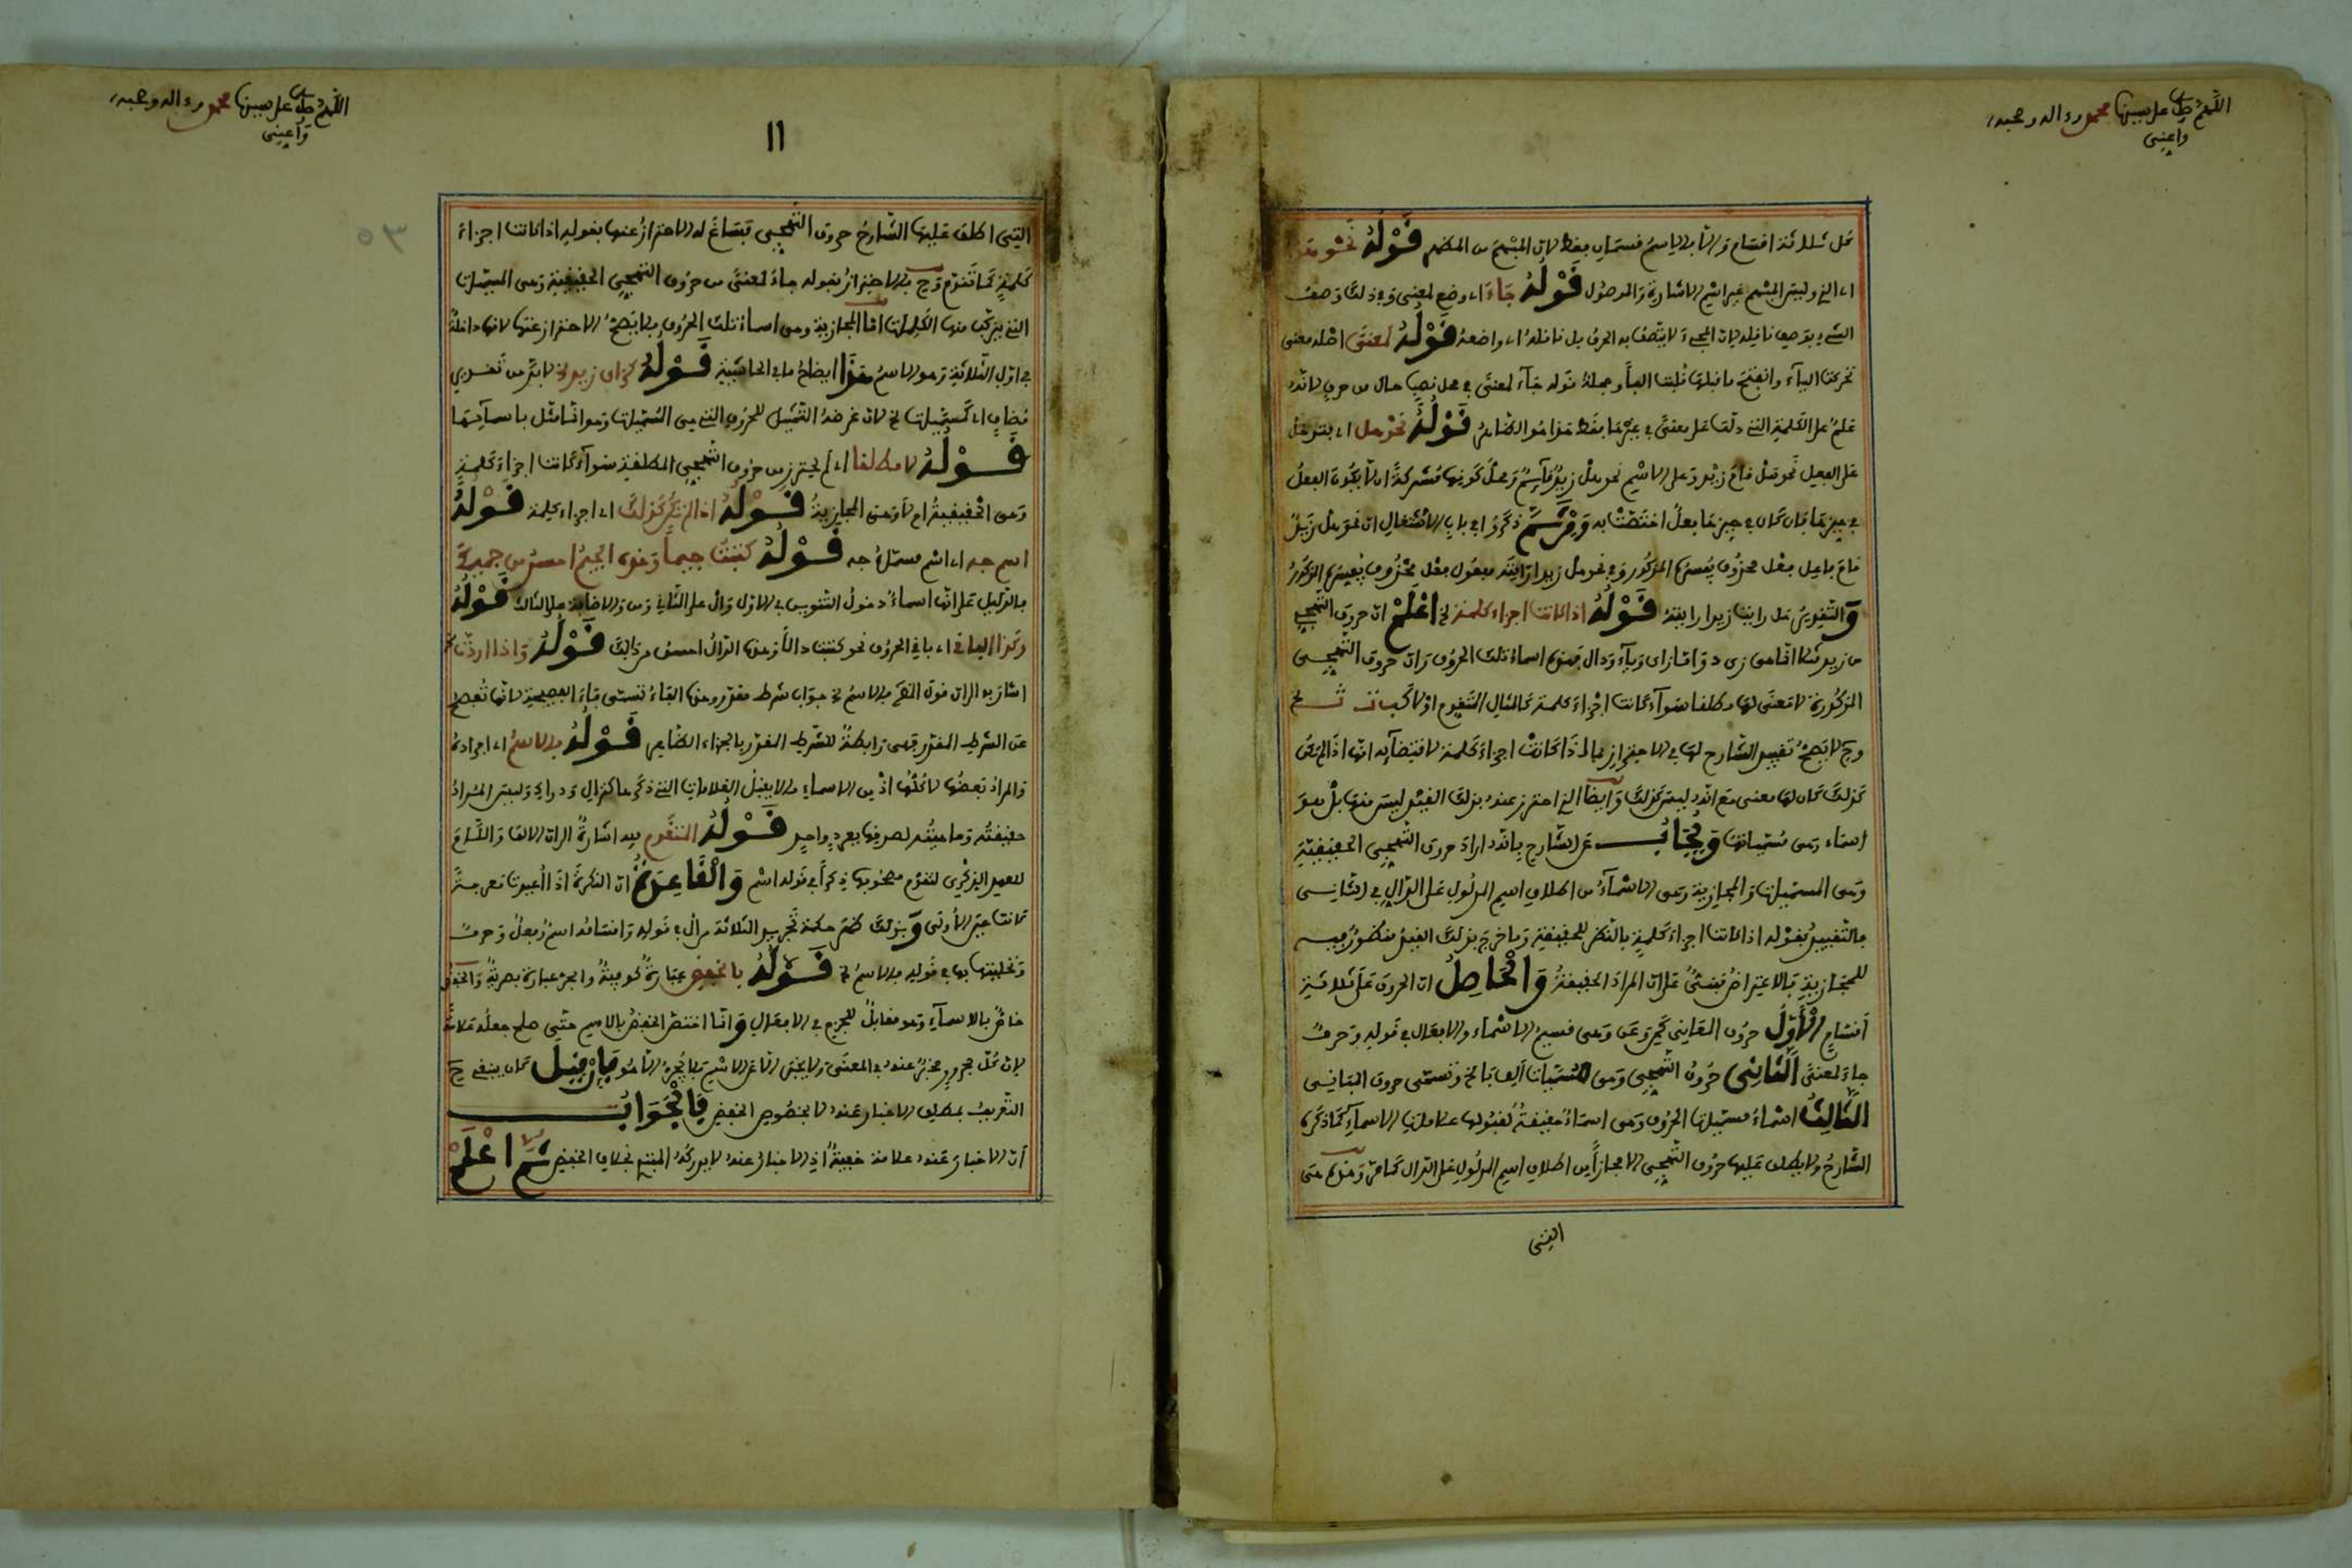 اللهم صل على سيدنا محمد وءاله وصحبه
وأعني
على ثلاثة اقسام والا فالاسم قسمان فقط لان المبهم من المظهر قوله نحو
اي الذ وليس المبهم غير اسم الاشارة والموصول قوله جاء اي وضع لمعنى وفي ذلك وصف
الشيء بوصف ناقله لان المجيء لا يتصف به الحرف بل ناقله اي واضعه قوله لمعنى اصله معنى
تحركت الياء وانفتح ما قبلها قلبت الفا وجملة قوله جاء لمعنى في محل نصب حال من حرف لانه
علم على الكلمة التي دلت على معنى في غيرها فقط هذا هو الظاهر قوله نحو هل اي بتدخل
على الفعل نحو هل قام زيد وعلى الاسم نحو هل زيد قائم ومحل كونها مشتركة ان لا يكون الفعل
في حيزها فان كان في حيزها فعل اختصت به ومن ثم ذكروا في باب الاشتغال ان نحو هل زيد
قام فاعل بفعل محذوف يفسره المذكور وفي نحو هل زيدا رايته مفعول بفعل محذوف يفسره المذكور
والتقدير هل رايت زيدا رايته قوله اذا كانت اجزاء كلمة الخ اعلم ان حروف التهجي
من زيد مثلا انما هي زى د واما زاى وياء ودال فهذه اسماء تلك الحروف وان حروف التهجي
المذكورة لا معنى لها مطلقا سواء كانت اجزاء كلمة كالمثال المتقدم او لا كـ ا ب ت ث الخ
وح لا يصح تقييد الشارح لها في الاحتراز بما اذا كانت اجزاء كلمة لاقتضائه انها اذا لم تكن
كذلك كان لها معنى مع انه ليس كذلك وايضا الذ احترز عنه بذلك القيد ليس منها بل هو
اسماء وهى مسمياتها ويجاب عن الشارح بانه اراد حروف التهجي الحقيقية
وهى المسميات والمجازية وهى الاسماء من اطلاق اسم المدلول على الدال في الثاني
فالتقييد بقوله اذا كانت اجزاء كلمة بالنظر للحقيقية وما خرج بذلك القيد منظور فيه
للمجازية فالاعتراض مبني على ان المراد الحقيقة والحاصل ان الحروف على ثلاثة
اقسام الاول حروف المعاني كمن وعن وهى قسيم الاسماء والافعال في قوله وحرف
جاء لمعنى الثاني حروف التهجي وهى مسميات ألف با الخ وتسمى حروف المباني
الثالث اسماء مسميات الحروف وهى اسماء حقيقة لقبولها علامات الاسماء كما ذكره
الشارح ولا يطلق عليها حروف التهجي الا مجازا من اطلاق اسم المدلول على الدال كما مر وهذه هى
التي
اللهم صل على سيدنا محمد وءاله وصحبه
وأعني
11
٥٣
التي اطلق عليها الشارح حروف التهجي فساغ له الاحتراز عنها بقوله اذا كانت اجزاء
كلمة كما تقدم وح فالاحتراز بقوله جاء لمعنى من حروف التهجي الحقيقية وهى المسميات
التي يتركب منها الكلمات اما المجازية وهى اسماء تلك الحروف فلا يصح الاحتراز عنها لانها داخلة
في اول الثلاثة وهو الاسم هذا ايضاح ما في الحاشية قوله كزاى زيد لا بد من تقدير
مضاف اي كمسميات الخ لان غرضه التمثيل للحروف التي هى المسميات وهو انما مثل باسمائها
قوله لا مطلقا اي لم يحترز من حروف التهجي المطلقة سواء كانت اجزاء كلمة
وهى الحقيقية ام لا وهى المجازية قوله اذا لم تكن كذلك اي اجزاء كلمة قوله
اسم جه اي اسم مسماه جه قوله كتبت جيما وهذه الجيم احسن من جيمك
فالدليل على انها اسماء دخول التنوين في الاول وال على الثاني ومن والاضافة على الثالث قوله
وكذا الباقي اي باقي الحروف نحو كتبت دالا وهذه الدال احسن من دالك قوله واذا اردت الخ
اشار به الى ان قول المص فالاسم الخ جواب شرط مقدر وهذه الفاء تسمى فاء الفصيحة لانها تفصح
عن الشرط المقدر وهى رابطة للشرط المقدر بالجزاء الظاهر قوله فالاسم اي افراده
والمراد بعضها لا كلها اذ من الاسماء ما لا يقبل العلامات التي ذكرها كنزال ودراك وليس المراد
حقيقته وماهيته لصدقها بفرد واحد قوله المتقدم فيه اشارة الى ان الالف واللام
للعهد الذكري لتقدم مصحوبها ذكرا في قوله اسم والقاعدة ان النكرة اذا اعيدت معرفة
كانت عين الاولى وبذلك ظهر حكمة تجريد الثلاثة من ال في قوله واقسامه اسم وفعل وحرف
وتحليتها بها في قوله فالاسم الخ قوله بالخفض عبارة كوفية والجر عبارة بصرية والخفض
خاص بالاسماء وهو مقابل للجزم في الافعال وانما اختص الخفض بالاسم حتى صلح جعله علامة
لان كل مجرور مخبر عنه في المعنى ولا يخبر الا عن الاسم فلا يجر الا هو فان قيل كان ينبغي ح
التعريف بمطلق الاخبار عنه لا بخصوص الخفض فالجواب
ان الاخبار عنه علامة خفية اذ الاخبار عنه لا يدركه المبتدي بخلاف الخفض ثم اعلم